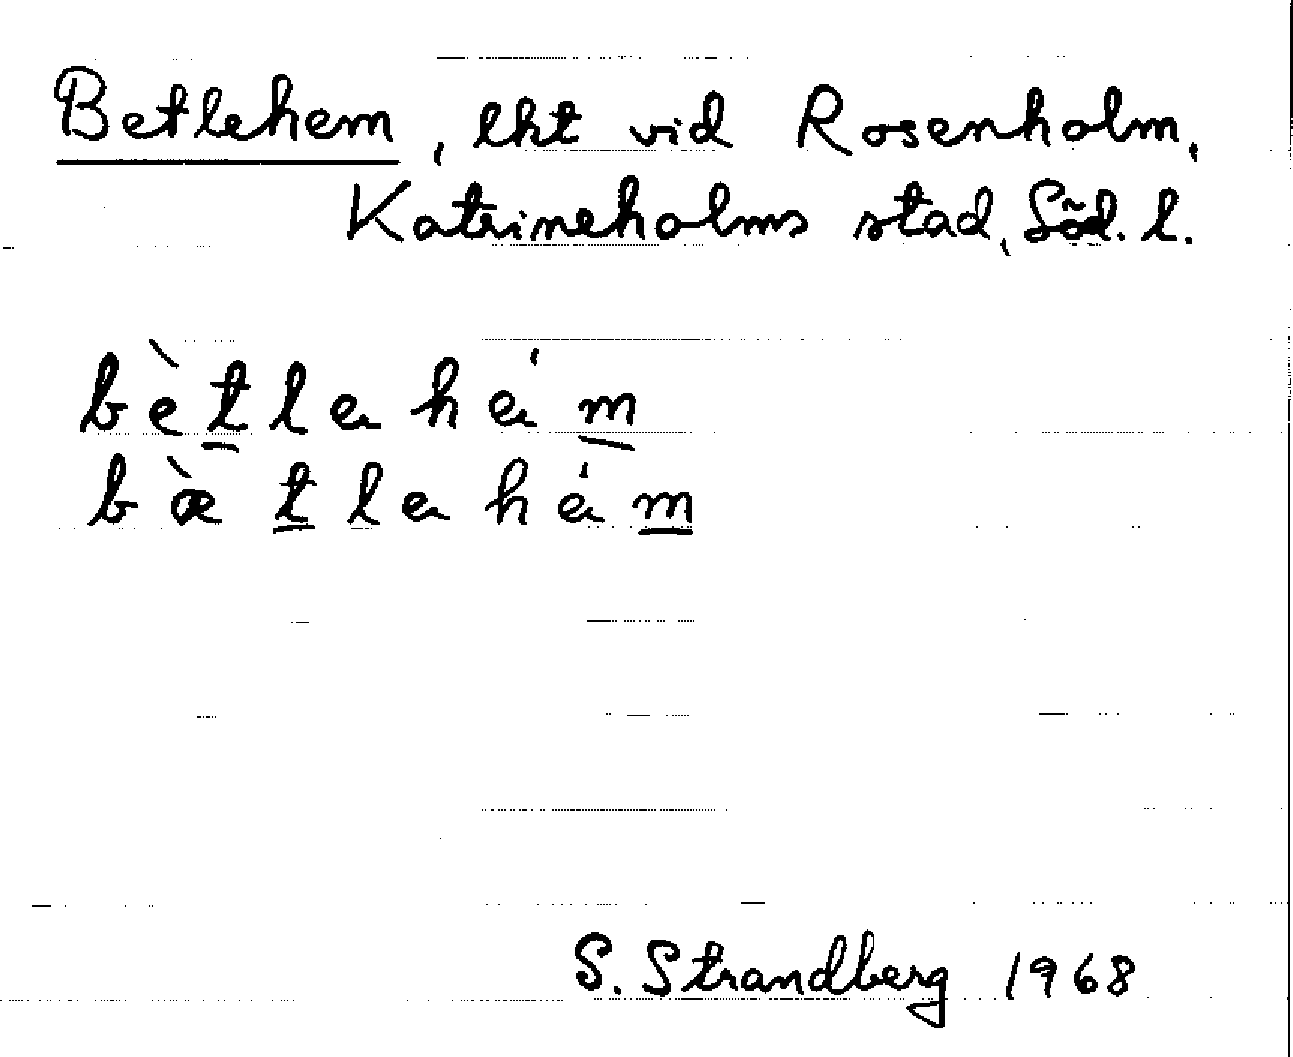 Betlehem, lht vid Rosenholm,
Katrineholms stad, Söd. l.
bètlehém
bæ̀tlehém
S. Strandberg 1968